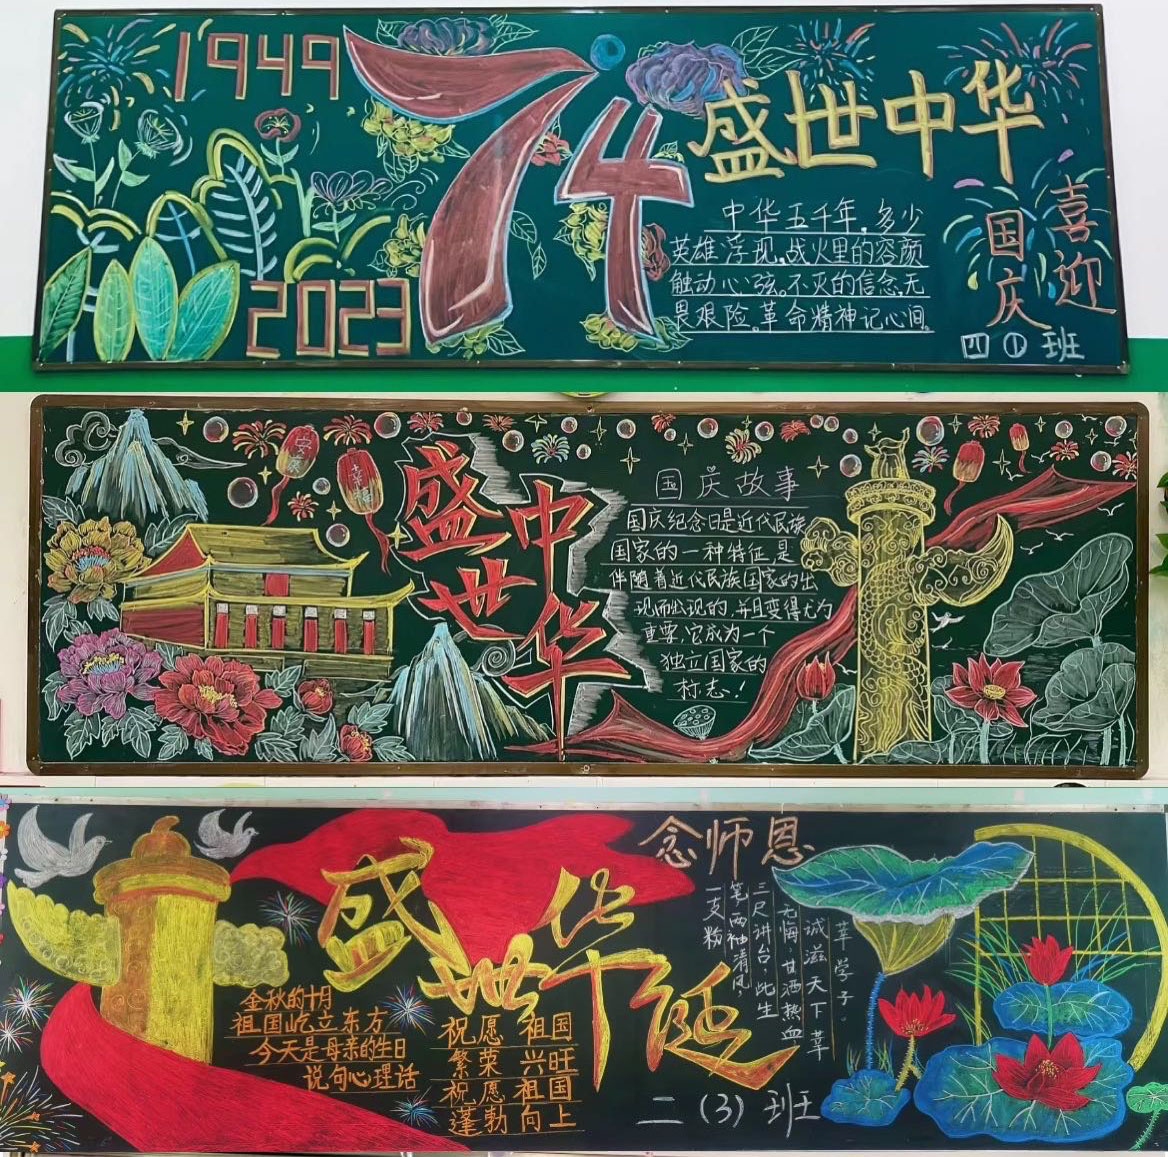 1949
74
盛世中华
中华五千年,多少
英雄浮现,战火里的容颜
触动心弦。不灭的信念,无
畏艰险,革命精神记心间。
喜迎
国庆
2023
四①班
安康
幸福
盛世
中华
国庆故事
国庆纪念日是近代民族
国家的一种特征是
伴随着近代民族国家的出
现而出现的,并且变得尤为
重要,它成为一个
独立国家的
标志!
盛世华诞
金秋的十月
祖国屹立东方
今天是母亲的生日
说句心理话
祝愿 祖国
繁荣 兴旺
祝愿 祖国
蓬勃向上
念师恩
一支粉
笔,两袖清风,
三尺讲台,此生
无悔 甘洒热血
诚滋天下莘
莘学子。
二(3)班